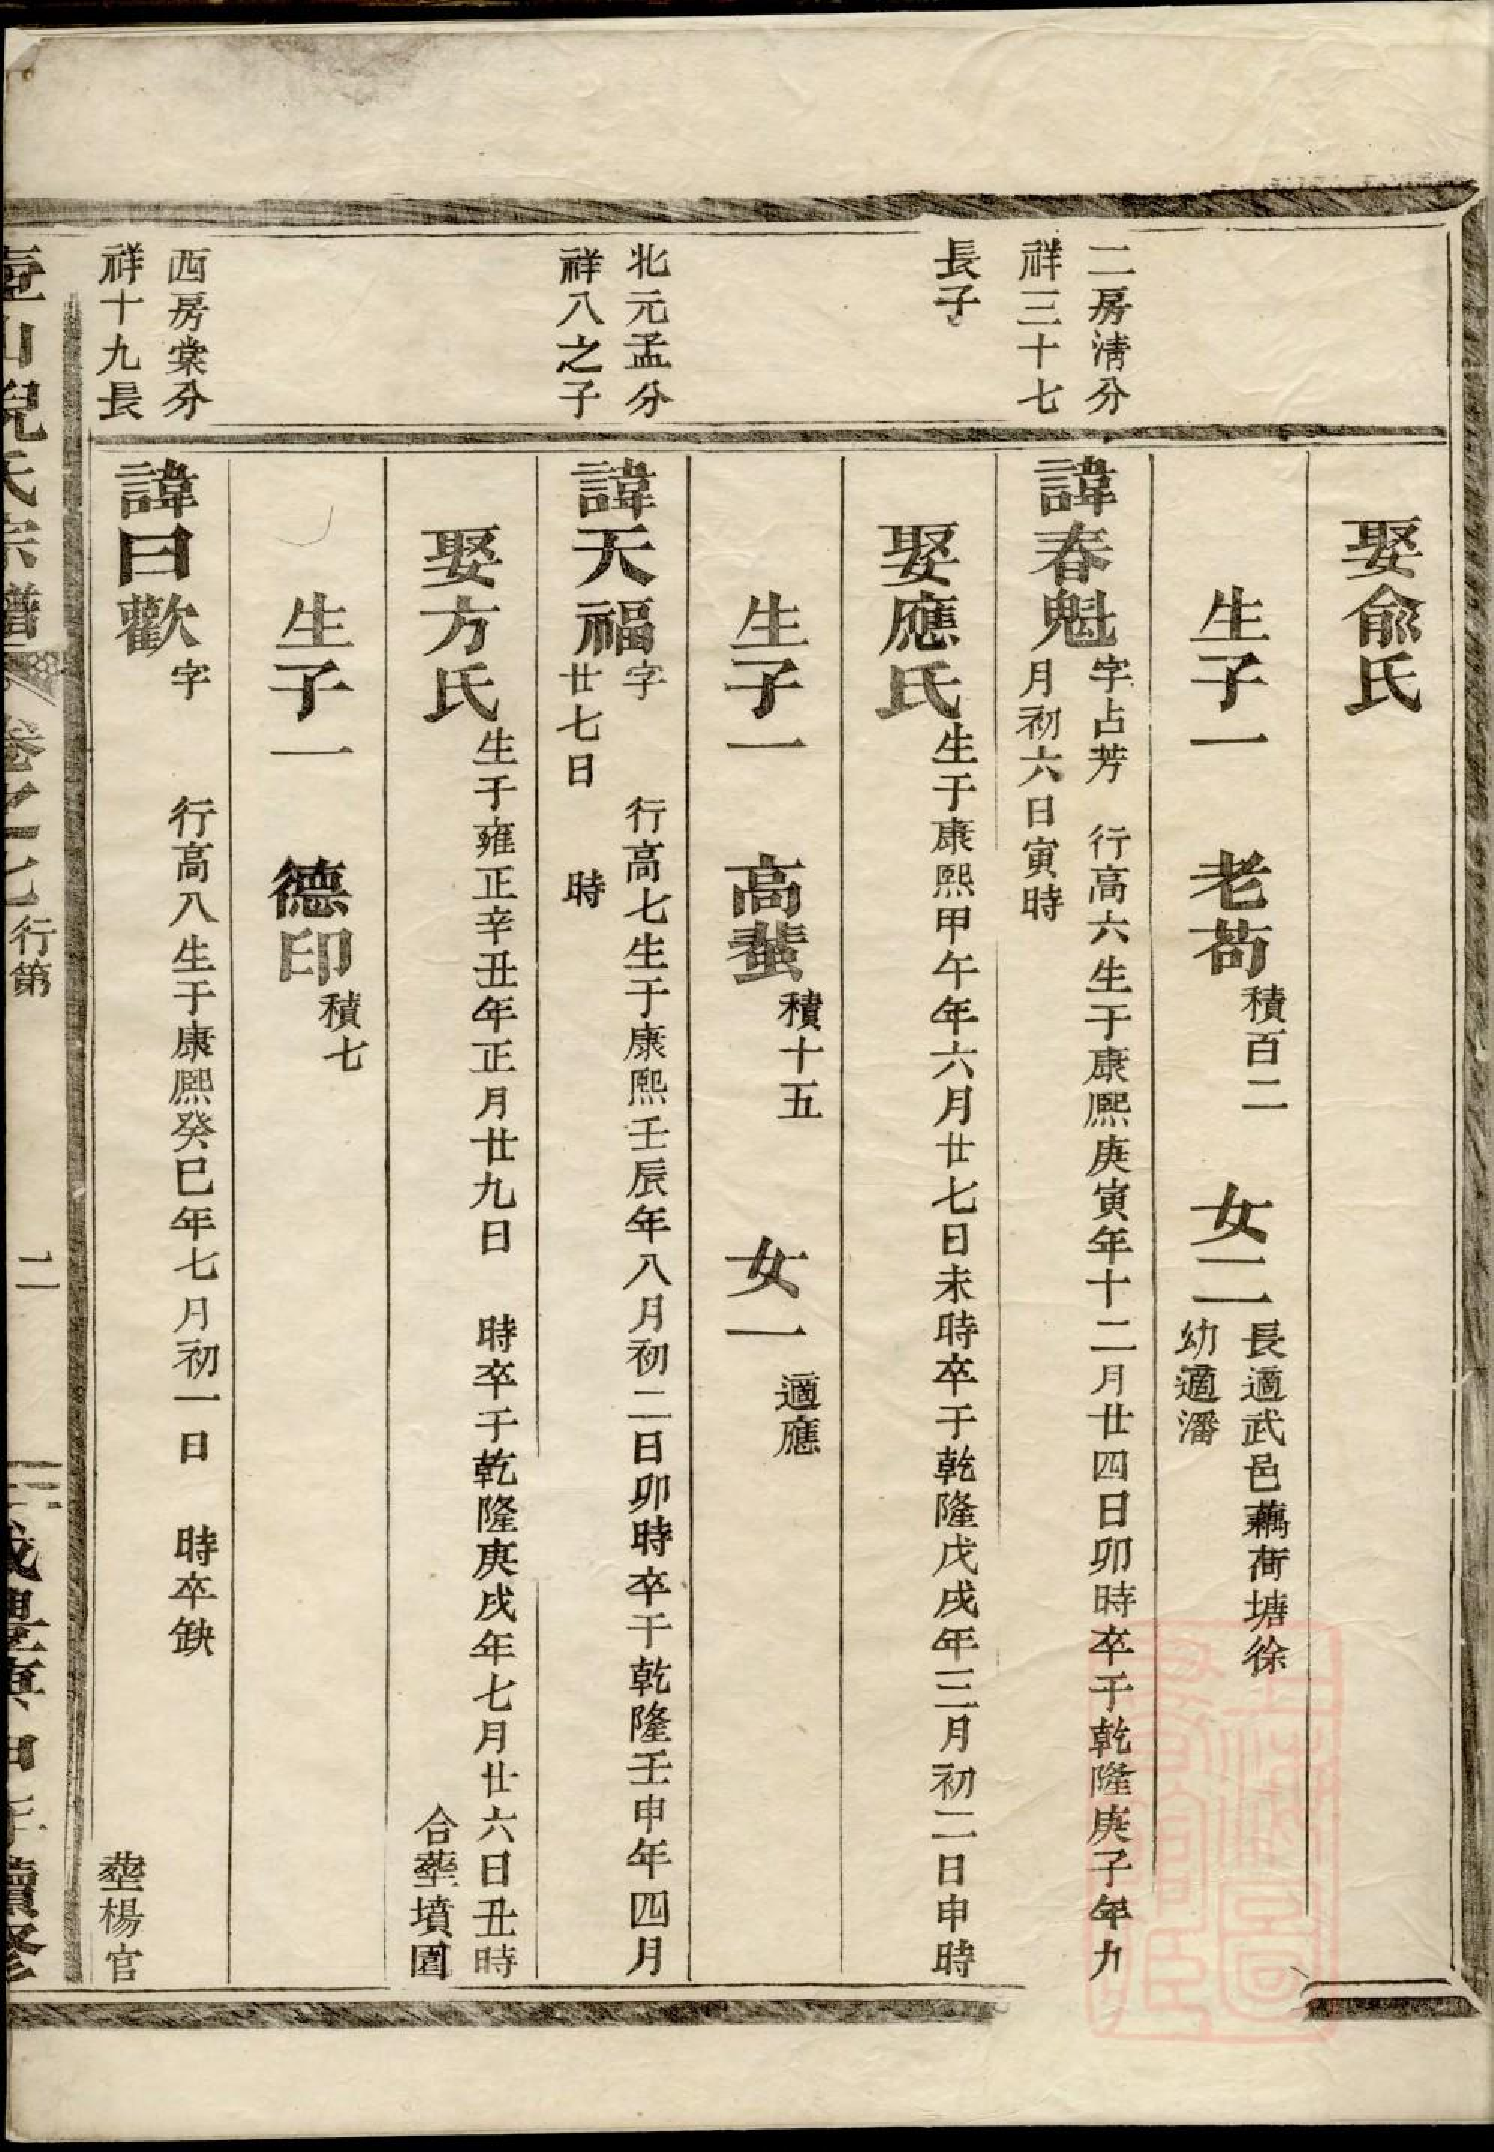 娶俞氏
生子一 老茍 積百二 女二 長適武邑藕荷塘徐
幼適潘
二房淸分
祥三十七
長子
諱春魁 字占芳 行高六生于康熙庚寅年十二月廿四日卯時卒于乾隆庚子年九
月初六日寅時
娶應氏 生于康熙甲午年六月廿七日未時卒于乾隆戊戌年三月初二日申時
生子一 高蜚 積十五 女一 適應
北元孟分
祥八之子
諱天福 字 行高七生于康熙壬辰年八月初二日卯時卒于乾隆壬申年四月
廿七日 時
娶方氏 生于雍正辛丑年正月廿九日 時卒于乾隆庚戌年七月廿六日丑時
合塟墳園
生子一 德印 積七
西房棠分
祥十九長
諱曰歡 字 行高八生于康熙癸巳年七月初一日 時卒缺
塟楊官
壺山倪氏宗譜 卷之七 行第 二 咸豐庚申年續修